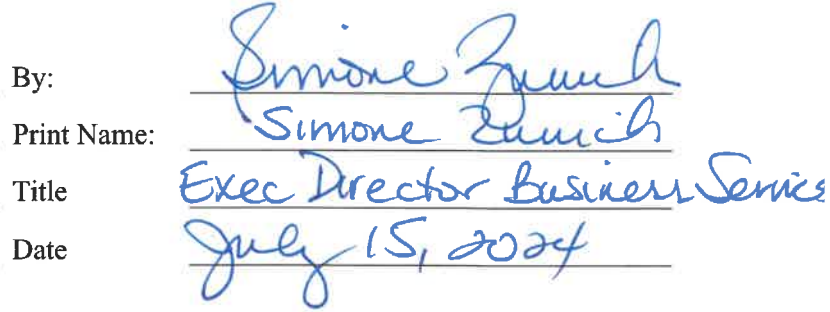 By: Simone Zunich
Print Name: Simone Zunich
Title Exec Director Business Services
Date July 15, 2024